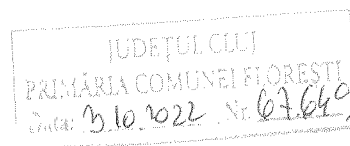 JUDEȚUL CLUJ
PRIMĂRIA COMUNEI FLOREȘTI
Data: 3 10 2022 Nr. 67640